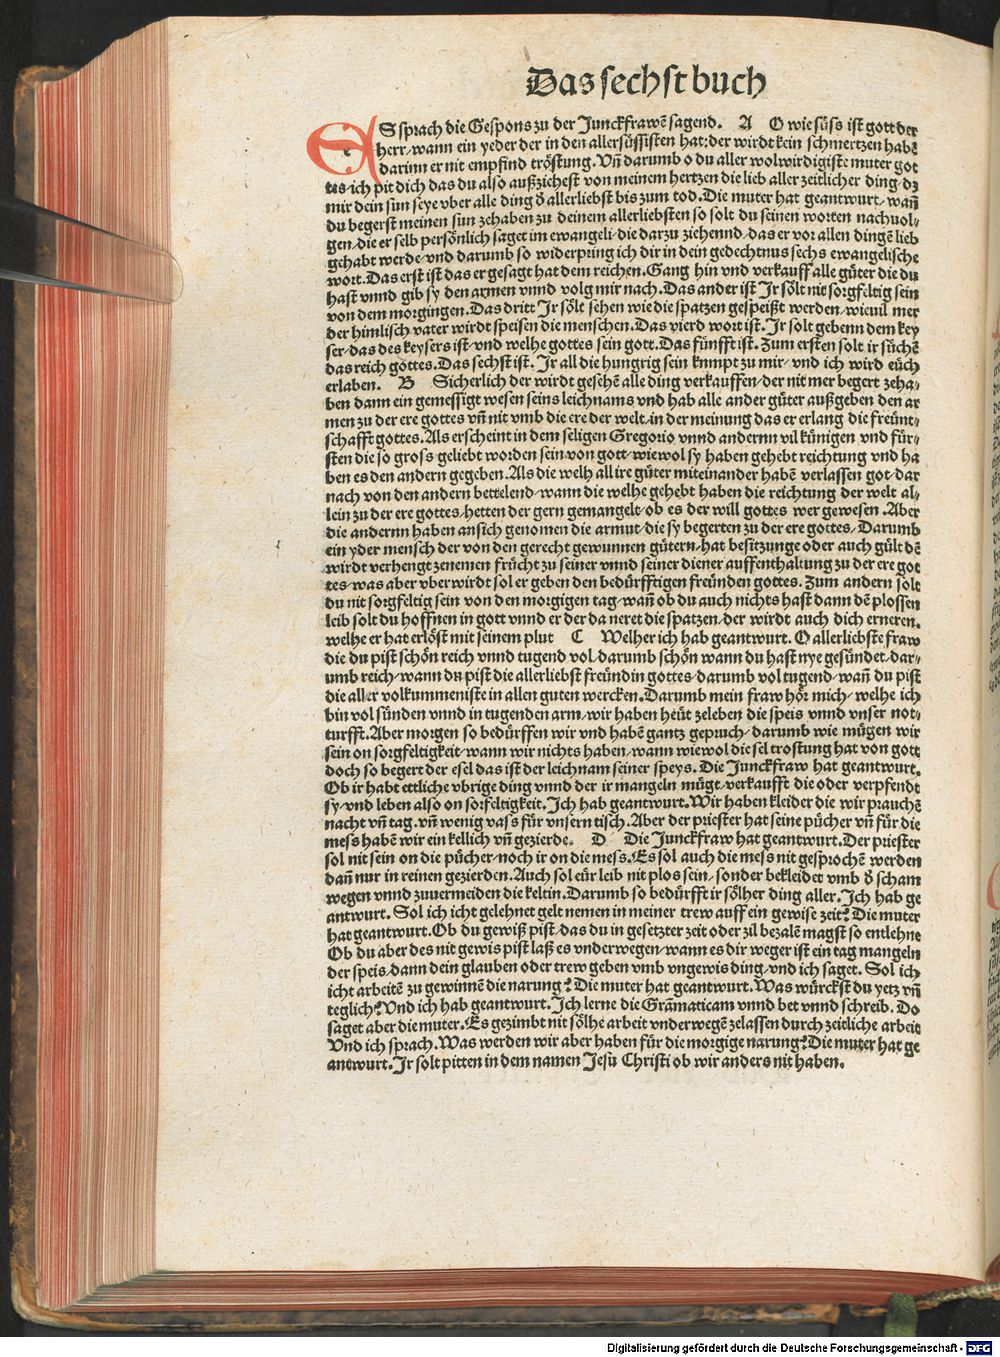 Das sechst buch
ES sprach die Gespons zu der Junckfrawē sagend. A O wie süss ist gott der
herr/wann ein yeder der in den allersüssisten hat: der wirdt kein schmertzen habē
darinn er nit empfind tröstung. Vñ darumb o du aller wolwirdigiste muter got
tes/ich pit dich das du also außziehest von meinem hertzen die lieb aller zeitlicher ding/dz
mir dein sun seye vber alle ding d̕ allerliebst bis zum tod. Die muter hat geantwurt/wañ
du begerst meinen sun zehaben zu deinem allerliebsten so solt du seinen worten nachuol⸗
gen/die er selb persönlich saget im ewangeli/die darzu ziehennd/das er vor allen dingē lieb
gehabt werde/vnd darumb so widerpring ich dir in dein gedechtnus sechs ewangelische
wort. Das erst ist das er gesagt hat dem reichen. Gang hin vnd verkauff alle güter die du
hast vnnd gib sy den armen vnnd volg mir nach. Das ander ist Jr sölt nit sorgfeltig sein
von dem morgingen. Das dritt Jr sölt sehen wie die spatzen gespeißt werden/wieuil mer
der himlisch vater wirdt speisen die menschen. Das vierd wort ist. Jr solt gebenn dem key
ser/das des keysers ist/vnd welhe gottes sein gott. Das fünfft ist. Zum ersten solt ir süchē
das reich gottes. Das sechst ist. Jr all die hungrig sein kumpt zu mir/vnd ich wird eüch
erlaben. B Sicherlich der wirdt gesehē alle ding verkauffen/der nit mer begert zeha⸗
ben dann ein gemessigt wesen seins leichnams vnd hab alle ander güter außgeben den ar
men zu der ere gottes vñ nit vmb die ere der welt/in der meinung das er erlang die freünt⸗
schafft gottes. Als erscheint in dem seligen Gregorio vnnd andernn vil künigen vnd für⸗
sten die so gross geliebt worden sein von gott/wiewol sy haben gehebt reichtung vnd ha
ben es den andern gegeben. Als die welh all ire güter miteinander habē verlassen got/dar
nach von den andern bettelend/wann die welhe gehebt haben die reichtung der welt al⸗
lein zu der ere gottes/hetten der gern gemangelt/ob es der will gottes wer gewesen. Aber
die andernn haben an sich genomen die armut/die sy begerten zu der ere gottes. Darumb
ein yder mensch der von den gerecht gewunnen gütern/hat besitzunge oder auch gült dē
wirdt verhengt zenemen frücht zu seiner vnnd seiner diener auffenthaltung zu der ere got
tes/was aber vberwirdt sol er geben den bedürfftigen freünden gottes. Zum andern solt
du nit sorgfeltig sein von den morgigen tag/wañ ob du auch nichts hast dann dē plossen
leib solt du hoffnen in gott vnnd er der da neret die spatzen/der wirdt auch dich erneren.
welhe er hat erlöst mit seinem plut C Welher ich hab geantwurt. O allerliebste fraw
die du pist schön reich vnnd tugend vol/darumb schön wann du hast nye gesündet/dar⸗
umb reich/wann du pist die allerliebst freündin gottes/darumb vol tugend/wañ du pist
die aller volkummeniste in allen guten wercken. Darumb mein fraw hör mich/welhe ich
bin vol sünden vnnd in tugenden arm/wir haben heüt zeleben die speis vnnd vnser not⸗
turfft. Aber morgen so bedürffen wir vnd habenn gantz gepruch/darumb wie mügen wir
sein on sorgfeltigkeit/wann wir nichts haben/wann wiewol die sel trostung hat von gott
doch so begert der esel das ist der leichnam seiner speys. Die Junckfraw hat geantwurt.
Ob ir habt ettliche vbrige ding vnnd der ir mangeln mügt/verkaufft die oder verpfendt
sy/vnd leben also on sorfeltigkeit. Jch hab geantwurt. Wir haben kleider die wir prauchē
nacht vñ tag. vñ wenig vass für vnsern tisch. Aber der priester hat seine pücher vñ für die
mess habēn wir ein kellich vñ gezierde. D Die Junckfraw hat geantwurt. Der priester
sol nit sein on die pücher/noch ir on die mess. Es sol auch die mess nit gesprochē werden
dañ nur in reinen gezierden. Auch sol eür leib nit plos sein/sonder bekleidet vmb d̕ scham
wegen vnnd zuuermeiden die keltin. Darumb so bedürfft ir sölher ding aller. Jch hab ge
antwurt. Sol ich icht gelehnet gelt nemen in meiner trew auff ein gewise zeit? Die muter
hat geantwurt. Ob du gewiß pist/das du in gesetzter zeit oder zil bezalē magst so entlehne
Ob du aber des nit gewis pist laß es vnderwegen/wann es dir weger ist ein tag mangeln
der speis/dann dein glauben oder trew geben vmb vngewis ding/vnd ich saget. Sol ich
icht arbeitē zu gewinnē die narung? Die muter hat geantwurt. Was würckst du yetz vñ
teglich? Vnd ich hab geantwurt. Jch lerne die Grāmaticam vnnd bet vnnd schreib. Do
saget aber die muter. Es gezimbt nit sölhe arbeit vnderwegē zelassen durch zeitliche arbeit
Vnd ich sprach. Was werden wir aber haben für die morgige narung? Die muter hat ge
antwurt. Jr solt pitten in dem namen Jesu Christi ob wir anders nit haben.
Digitalisierung gefördert durch die Deutsche Forschungsgemeinschaft - DFG